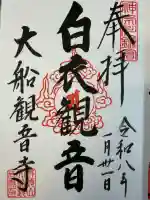 奉拝
令和八年
一月卅一日
白衣観音
大船観音寺